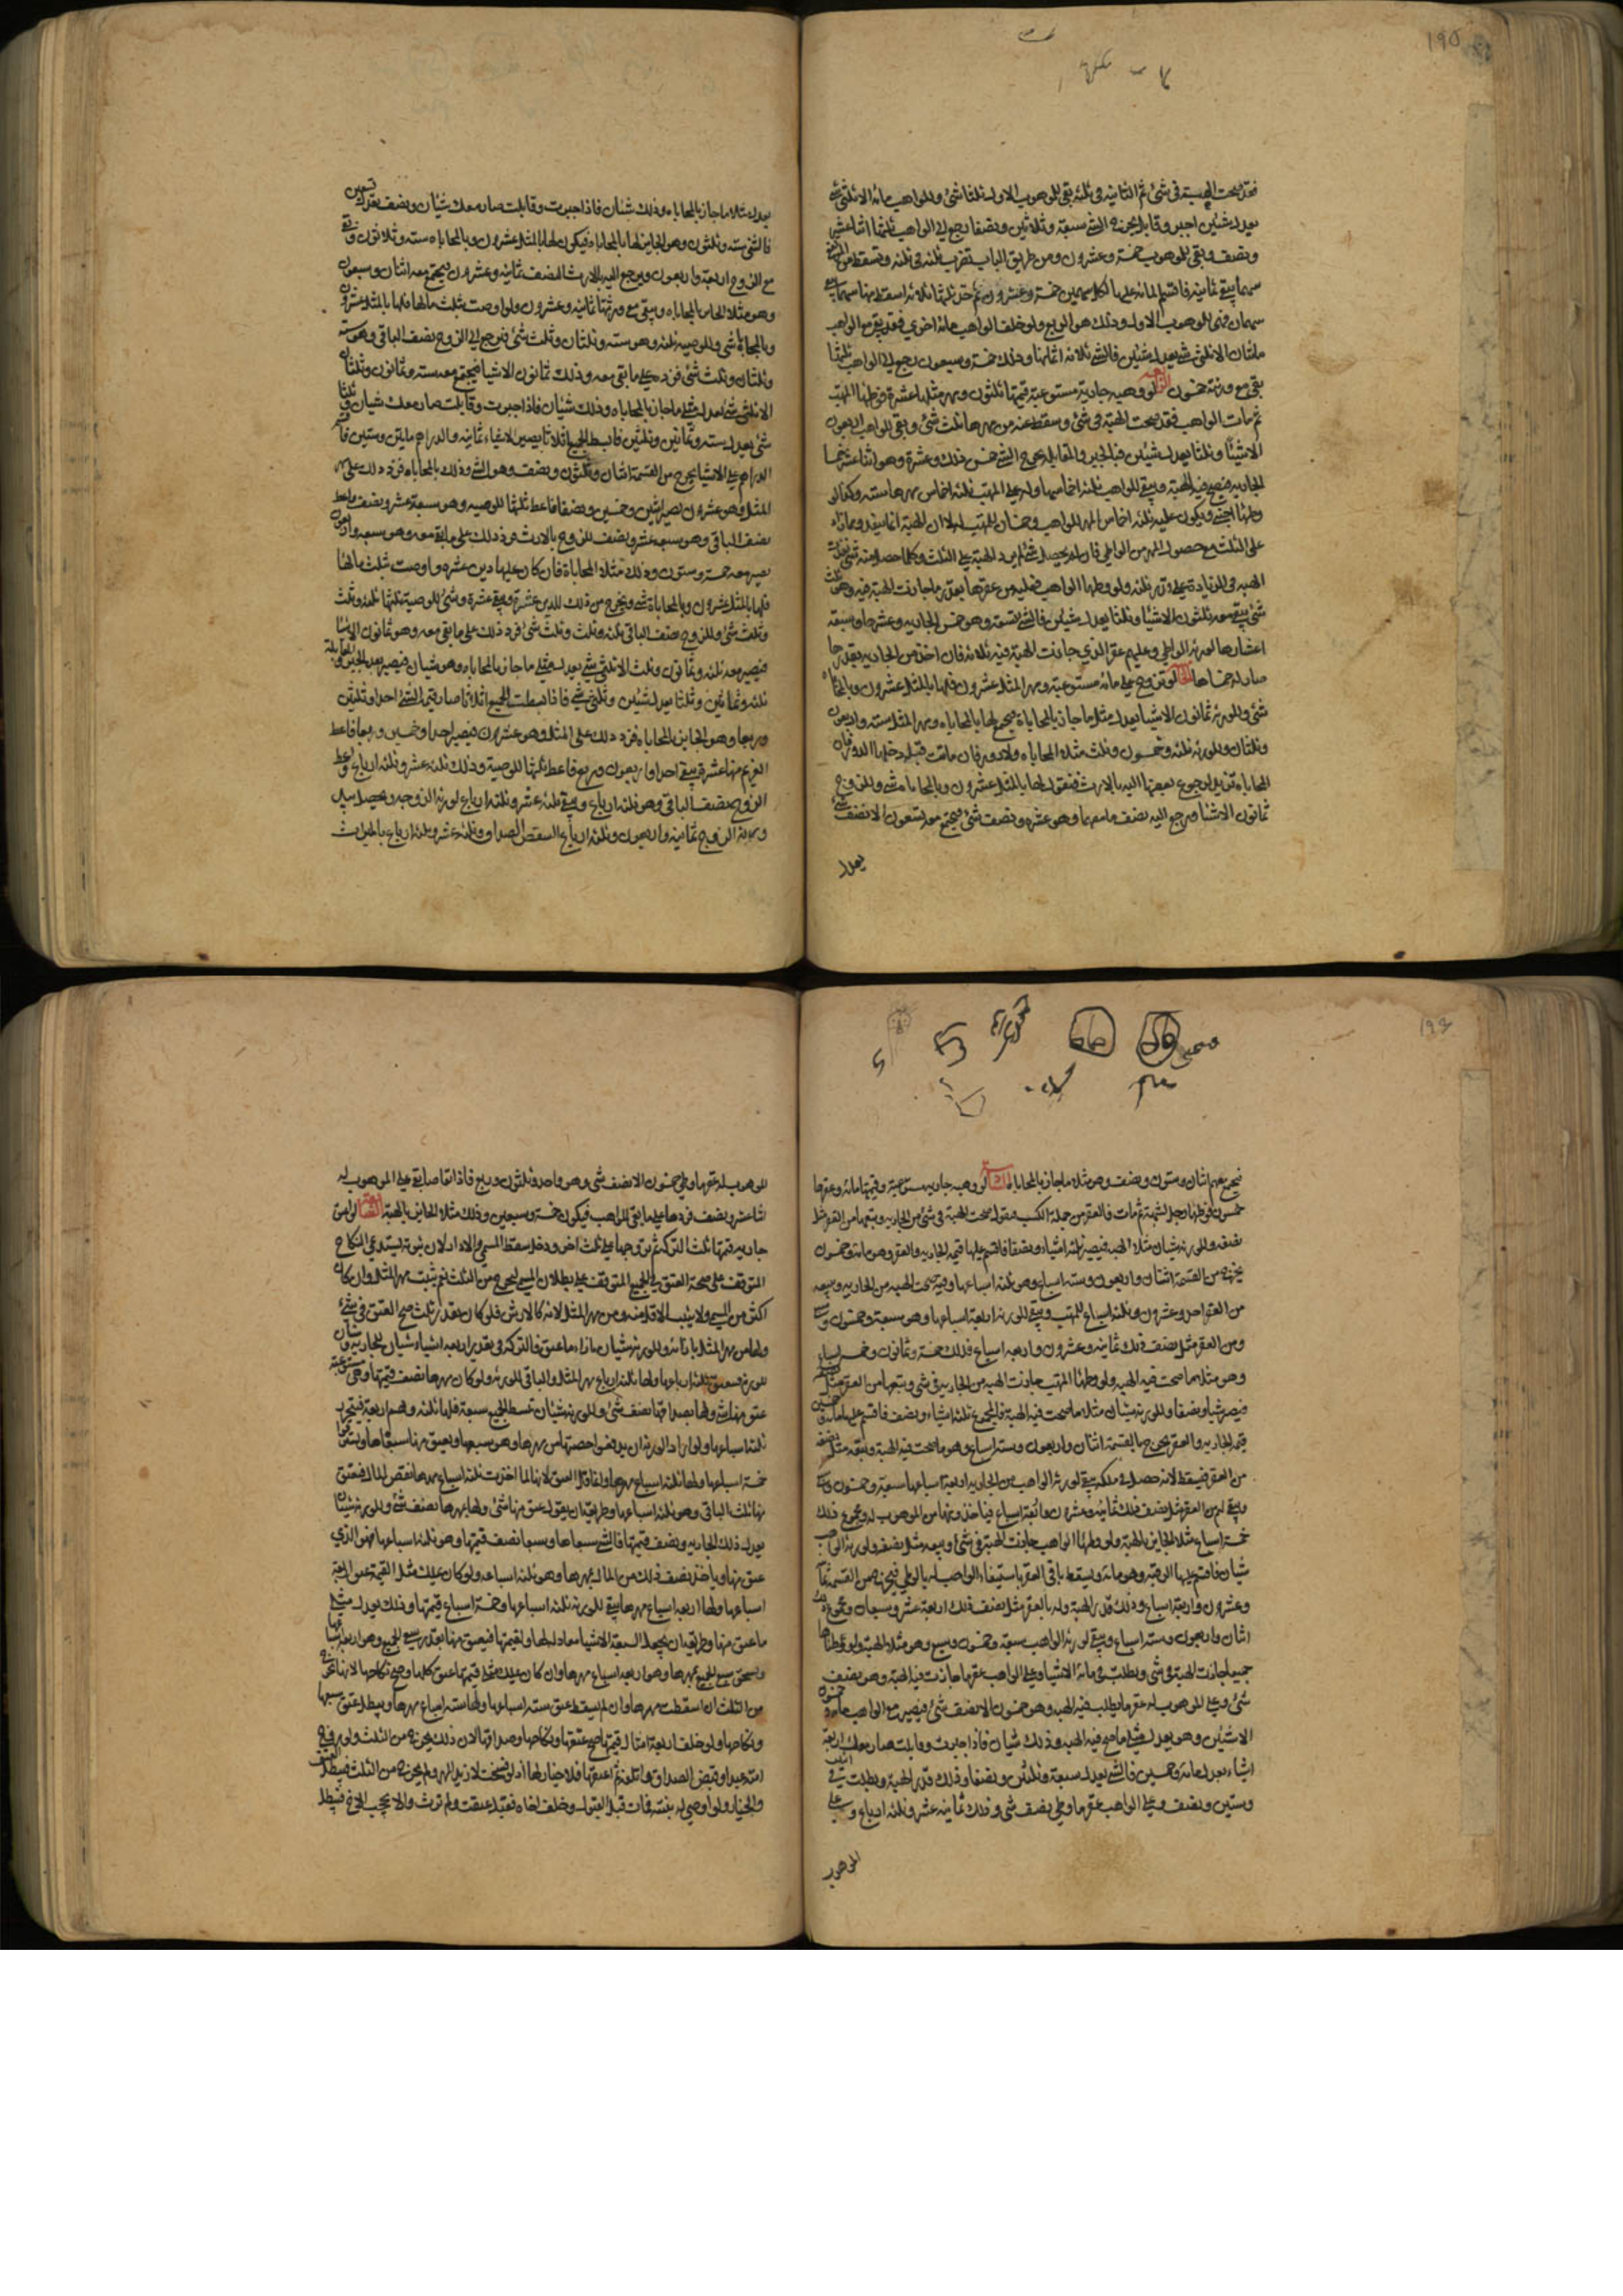 فقد صحت الهبة في شئ ثم الثانيه في ثلثه بقي للموهوب الاول ثلثا شئ وللواهب مائه الا ثلثي شئ
يعدل شيئين اجبر وقابل يخرج الشئ سبعة وثلاثين ونصفا رجع الى الواهب ثلثها اثنا عشر
ونصف وبقي للموهوب خمسة وعشرون ومن طريق الباب تضرب ثلثه في ثلثه وتسقط من التسعة
سهما يبقى ثمانيه فاقسم المائه عليها لكل سهمين خمسة وعشرون ثم خذ ثلثها ثلاثه اسقط منها سهما يبقى
سهمان فهي للموهوب الاول وذلك هو الربع ولو خلف الواهب مائه اخرى فقد بقي مع الواهب
مائتان الا ثلثي شئ يعدل شيئين فالشئ ثلاثه اثمانها وذلك خمسة وسبعون رجع الى الواهب ثلثها
بقي مع ورثته خمسون لو وهبه جارية مستوعبة قيمتها ثلثون ومهر مثلها عشرة فوطئها المتهب
ثم مات الواهب فقد صحت الهبة في شئ وسقط عنه من مهرها ثلث شئ وبقي للواهب اربعون
الا شيئا وثلثا يعدل شيئين فبالجبر والمقابلة يخرج الشئ خمس ذلك وعشره وهو اثنا عشر خمسا
الجارية فتصح فيه الهبة ويبقى للواهب ثلثه اخماسها وله على المتهب ثلثه اخماس مهرها سته وكذا لو
وطئها اجنبي ويكون عليه ثلثه اخماس المهر للواهب وخمسان للمتهب الا ان الهبة انما ينفذ فيما زاد
على الثلث مع حصول المهر من الواطئ فان لم يحصل شئ لم يزد الهبة على الثلث وكلما حصل منه شئ نفذت
الهبه في الزيادة بقدر ثلثه ولو وطئها الواهب فعليه من عقرها بقدر ما جازت الهبة فيه وهو ثلث
شئ يبقى معه ثلثون الا شيئا وثلثا يعدل شيئين فالشئ تسعة وهو خمس الجاريه وعشرها وسبعه
اعشارها لورثة الواطئ وعليهم عقر الذي جازت الهبة فيه ثلاثه فان اخذ من الجاريه بقدرها
صار له خمساها لو تزوج على مائه مستوعبة ومهر المثل عشرون فلها بالمثل عشرون وبالمحاباه
شئ وللورثة ثمانون الا شيئا يعدل مثلي ما جاز بالمحاباة فيصح لها بالمحاباه ومهر المثل سته واربعون
وثلثان وللورثه ثلثه وخمسون وثلث مثلا المحاباه ولا دور فان ماتت قبله دخلها الدور فان
المحاباه تزيد برجوع بعضها اليه بالارث فنقول لها بالمثل عشرون وبالمحاباه شئ وللزوج
ثمانون الا شيئا ويرجع اليه نصف ما معها وهو عشره ونصف شئ فيجتمع معه تسعون الا نصف شئ
يعدل
يعدل مثلا ما جاز بالمحاباه وذلك شيئان فاذا جبرت وقابلت صار معك شيئان ونصف يعدل تسعين
فالشئ سته وثلثون وهو الجايز لها بالمحاباه فيكون لها بالمثل عشرون وبالمحاباه سته وثلاثون وبقي
مع الزوج اربعة واربعون ويرجع اليه بالارث النصف ثمانيه وعشرون فيجتمع معه اثنان وسبعون
وهو مثلا الجايز بالمحاباه ويبقى مع ورثتها ثمانيه وعشرون ولو اوصت بثلث مالها فلها بالمثل عشرون
وبالمحاباه شئ وللوصيه ثلثه وهو سته وثلثان وثلث شئ فيرجع الى الزوج نصف الباقي وهو سته
وثلثان وثلث شئ فزده على ما بقي معه وذلك ثمانون الا شيئا فيجتمع معه سته وثمانون وثلثان
الا ثلثي شئ يعدل مثلي ما جاز بالمحاباه وذلك شيئان فاذا جبرت وقابلت صار معك شيئان وثلثا
شئ يعدل سته وثمانين وثلثين فابسط الجميع اثلاثا يصير الاشياء ثمانيه والدراهم مايتين وستين فاقسم
الدراهم على الاشيا يخرج من القسمة اثنان وثلثون ونصف وهو الشئ وذلك بالمحاباه فزد ذلك على مهر
المثل وهو عشرون يصير اثنين وخمسين ونصفا فاعط ثلثها للوصيه وهو سبعة عشر ونصف واعط
نصف الباقي وهو سبعه عشر ونصف للزوج بالارث فزد ذلك على ما بقي معه وهو سبعه واربعون
يصير معه خمسة وستون وذلك مثلا المحاباة فان كان عليها دين عشره واوصت بثلث مالها
فلها بالمثل عشرون وبالمحاباة شئ ويخرج من ذلك للدين عشرة ويبقى عشرة وشئ للوصية ثلثها ثلثه وثلث
وثلث شئ وللزوج نصف الباقي ثلثه وثلث وثلث شئ فزد ذلك على ما بقي معه وهو ثمانون الا شيئا
فيصير معه ثلثه وثمانون وثلث الا ثلثي شئ يعدل مثلي ما جاز بالمحاباه وهو شيئان فيصير بعد الجبر والمقابلة
ثلثه وثمانين وثلثا يعدل شيئين وثلثي شئ فاذا بسطت الجميع اثلاثا صار قيمة الشئ احدا وثلثين
وربعا وهو الجايز بالمحاباه فزد ذلك على المثل وهو عشرون فيصير احدا وخمسين وربعا فاعط
الغريم منها عشرة يبقى احدا واربعون وربع فاعط ثلثها للوصية وذلك ثلثه عشر وثلثه ارباع واعط
الزوج نصف الباقي وهو ثلثه ارباع ويبقى ثلثه عشر وثلثه ارباع لورثة الزوجه ويحصل بيد
ورثة الزوج ثمانيه واربعون وثلثه ارباع الصداق وثلثه عشر وثلثه ارباع بالميراث
فيجتمع معهم اثنان وستون ونصف وهو مثلا ما جاز بالمحاباه لو وهبه جارية مستوعبة وقيمتها مائه وعقرها
خمسون فوطئها رجل لشبهة ثم مات فالعقر من جملة الكسب فنقول صحت الهبة في شئ من الجاريه ويتبعها من العقر مثل
نصفه وللورثه شيئان مثلا الهبه فيصير ثلثه اشياء ونصفا فاقسم عليها قيمة الجاريه والعقر وهو مائه وخمسون
يخرج من القسمة اثنان واربعون وسته اسباع وهو ثلثه اسباعها وفيه صحت الهبه من الجاريه ويتبعه
من العقر احد وعشرون وثلثه اسباع للمتهب ويبقى للورثه اربعة اسباعها وهو سبعة وخمسون وسبع
ومن العقر مثل نصف ذلك ثمانيه وعشرون واربعه اسباع فذلك خمسة وثمانون وخمسه اسباع
وهو مثلا ما صحت فيه الهبه ولو وطئها المتهب جازت الهبه من الجاريه في شئ ويتبعها من العقر مثل نصفه
فيصير شيئا ونصفا وللورثه شيئان مثلا ما صحت فيه الهبة فالمجموع ثلثه اشياء ونصف فاقسم عليها مائه وخمسين
قيمة الجاريه والعقر يخرج بالقسمة اثنان واربعون وسته اسباع وهو ما صحت فيه الهبة ويتبعه مثل نصفه
من العقر فيسقط لانه حصل في ملكه يبقى لورثة الواهب من الجاريه اربعة اسباعها سبعة وخمسون وسبع
ويبقى لهم من العقر مثل نصف ذلك ثمانيه وعشرون واربعة اسباع فياخذونها من الموهوب له ومجموع ذلك
خمسة اسباع مثلا الجايز بالهبة ولو وطئها الواهب جازت الهبة في شئ ويتبعه مثل نصفه ولورثة الواهب
شيئان فاقسم عليها الرقبه وهو مائه ويسقط باقي العقر باستيفاء الواهب له بالوطي فيخرج من القسمة ثمانية
وعشرون واربعة اسباع وذلك قدر الهبة وله بالعقر مثل نصف ذلك اربعة عشر وسبعان ومجموع ذلك
اثنان واربعون وسته اسباع ويبقى لورثة الواهب سبعة وخمسون وسبع وهو مثلا الهبة ولو وطئاها
جميعا جازت الهبة في شئ وبطلت في مائة الا شيئا وعلى الواهب عقر ما جازت فيه الهبة وهو نصف
شئ وعلى الموهوب له عقر ما بطلت فيه الهبه وهو خمسون الا نصف شئ فيصير مع الواهب مائه وخمسون
الا شيئين وهو يعدل مثلي ما صح فيه الهبه وذلك شيئان فاذا جبرت وقابلت صار معك اربعة
اشياء يعدل مائة وخمسين فالشئ يعدل سبعة وثلثين ونصفا وذلك قدر الهبة وبطلت في اثنين
وستين ونصف وعلى الواهب عقر ما وطي نصف شئ وذلك ثمانيه عشر وثلثه ارباع وعلى
الموهوب
الموهوب له عقر ما وطي خمسون الا نصف شئ وهو واحد وثلثون وربع فاذا تقاصا بقي على الموهوب له
اثنا عشر ونصف فزدها على ما بقي للواهب فيكون خمسة وسبعين وذلك مثلا الجايز بالهبة لو اعتق
جاريه قيمتها ثلث التركة ثم تزوجها على ثلث اخر ودخل سقط المسمى والا دار لان ثبوته يستدعي النكاح
المتوقف على صحة العتق في الجميع المتوقف على بطلان المسمى ليخرج من الثلث ثم يثبت مهر المثل وان كان
اكثر من المسمى ولا يثبت الاقل منه ومن مهر المثل لانه كالارش فلو كان بقدر ثلث صح العتق في شئ
ولها من مهر المثل بازائه وللورثه شيئان بازاء ما عتق فالتركة في تقدير اربعه اشياء شيئان للجاريه وشيئان
للورثه فيعتق ثلثه ارباعها ولها ثلثه ارباع مهر المثل والباقي للورثه ولو كان مهرها نصف قيمتها وهي مستوعبة
عتق منها شئ ولها بصداقها نصف شئ وللورثه شيئان تبسط الجميع سبعه فلها ثلثه ولهم اربعة فيتحرر
ثلثه اسباعها ولو اراد الورثه ان يدفعوا حصتها من مهرها وهو سبعها ويعتق منها سبعاها ويسترقوا
خمسة اسباعها ولها ثلثه اسباع مهرها وانما قل العتق لانها لما اخذت ثلثه اسباع مهرها نقص المال فيعتق
منها ثلث الباقي وهو ثلثه اسباعها وطريقه ان يقول عتق منها شئ ولها بمهرها نصف شئ وللورثه شيئان
يعدل ذلك الجاريه ونصف قيمتها فالشئ سبعاها وسبعا نصف قيمتها وهو ثلثه اسباعها فهو الذي
عتق منها وياخذ نصف ذلك من المال بمهرها وهو ثلثه اسباعه ولو كان يملك مثل القيمة عتق اربعة
اسباعها ولها اربعة اسباع مهرها يبقى للورثه ثلثه اسباعها وخمسة اسباع قيمتها وذلك يعدل مثلي
ما عتق منها وطريقه ان يجعل السبعة الاشياء معادله لها ولقيمتها فيعتق منها بقدر سبعي الجميع وهو اربعة اسباعها
ويستحق سبع الجميع بمهرها وهو اربعه اسباع مهرها وان كان يملك مثلي قيمتها عتق كلها وصح نكاحها لانها تخرج
من الثلث ان اسقطت مهرها وان لم يسقط عتق سته اسباعها ولها سته اسباع مهرها ويبطل عتق سبعها
ونكاحها ولو خلف اربعة امثال قيمتها صح عتقها ونكاحها وصداقها لان ذلك يخرج من الثلث ولو زوج
امته عبدا وقبض الصداق واتلفه ثم اعتقها فلا خيار لها اذ لو فسخت لزم رد المهر ولم يخرج من الثلث فيبطل العتق
والخيار ولو اوصي له ببنته فمات قبل القبول وخلف اخا فقبل عتقت ولم ترث والا يحجب الاخ فيبطل